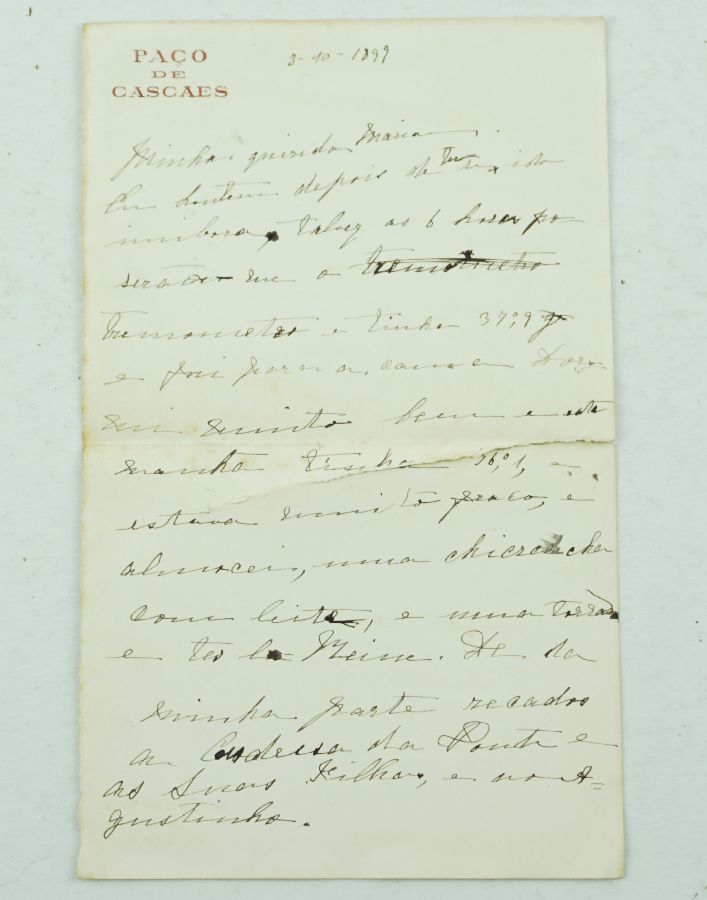 PAÇO
DE
CASCAES
3-10-1899
Minha querida Maria.
Eu hontem depois de tu ido
imbora, talvez as 6 horas po
serão me o
tremometro e tinha 37º,9
e fui para a cama Dor
mi muito bem e esta
manhã tinha 36º,1, e
estava muito fraco, e
almocei, uma chicra cha
com leite, e uma torrada
e Reine. De da
minha parte recados
a Condessa da Ponte e
as Suas Filhas, e ao A=
gustinho.